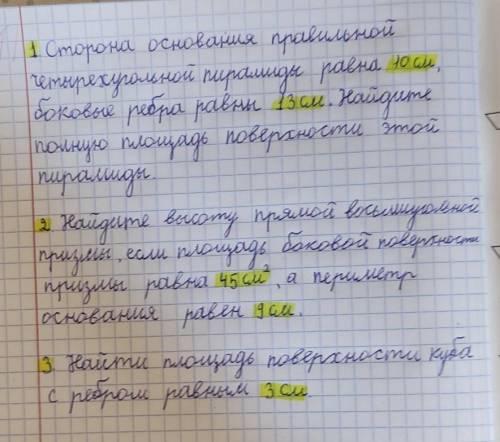 1. Сторона основания правильной
четырехугольной пирамиды равна 10 см,
боковые ребра равны 13 см. Найдите
полную площадь поверхности этой
пирамиды.
2. Найдите высоту прямой восьмиугольной
призмы, если площадь боковой поверхности
призмы равна 45 см², а периметр
основания равен 9 см.
3. Найти площадь поверхности куба
с ребром равным 3 см.